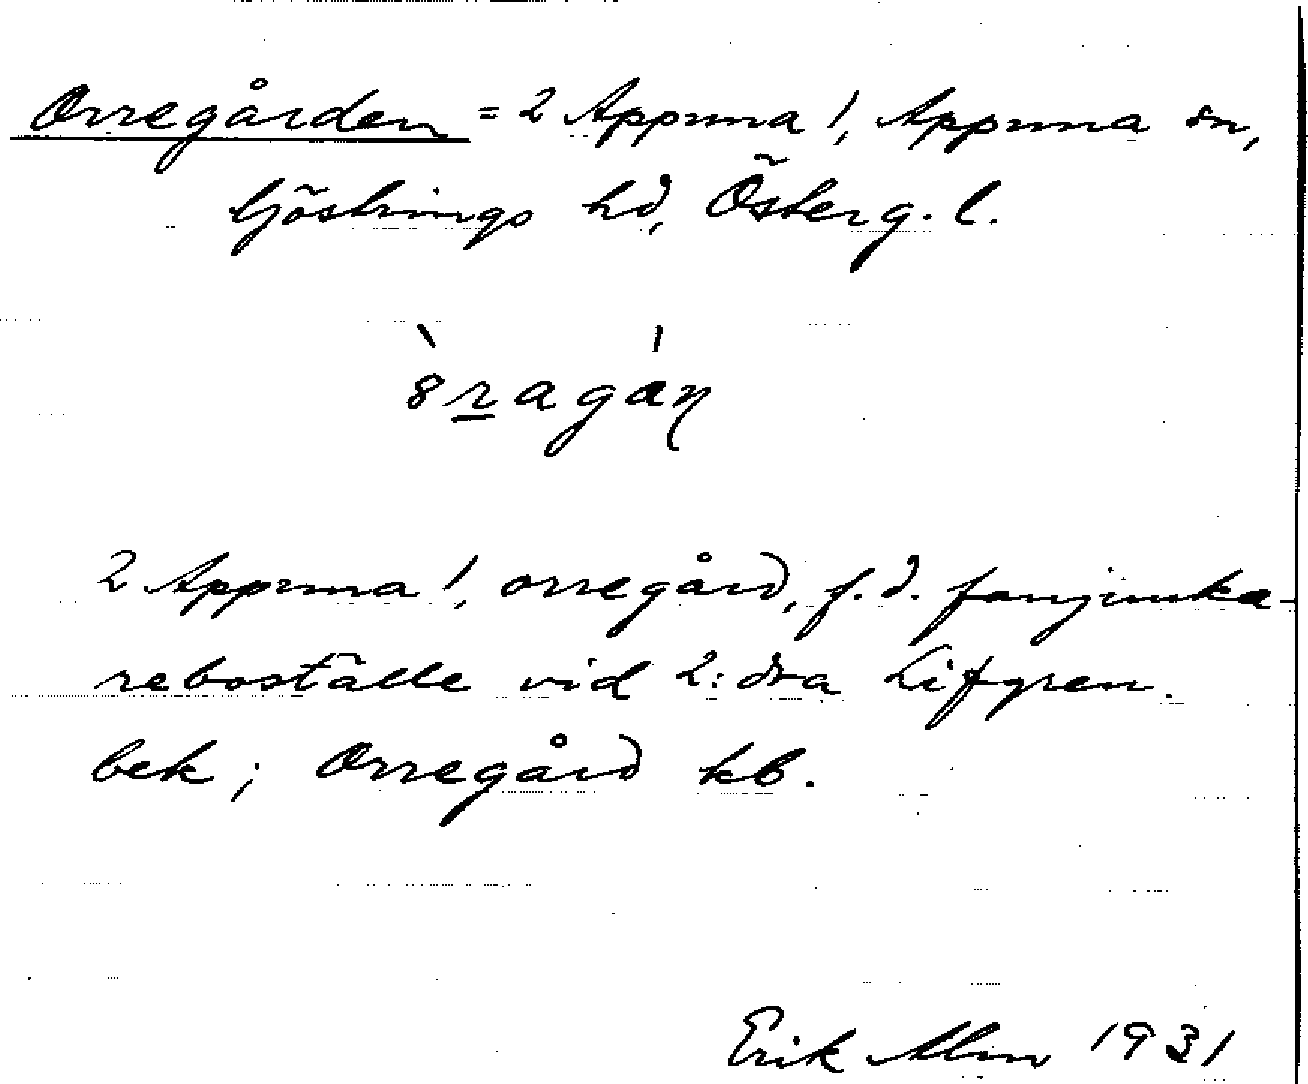 Orregården = 2 Appuna /, Appuna sn,
Göstrings hd, Österg. l.
2 Appuna /, orregård, f.d. fanjunka-
reboställe vid 2:dra Lifgren.
bek; Orregård kb.
Erik Alm 1931